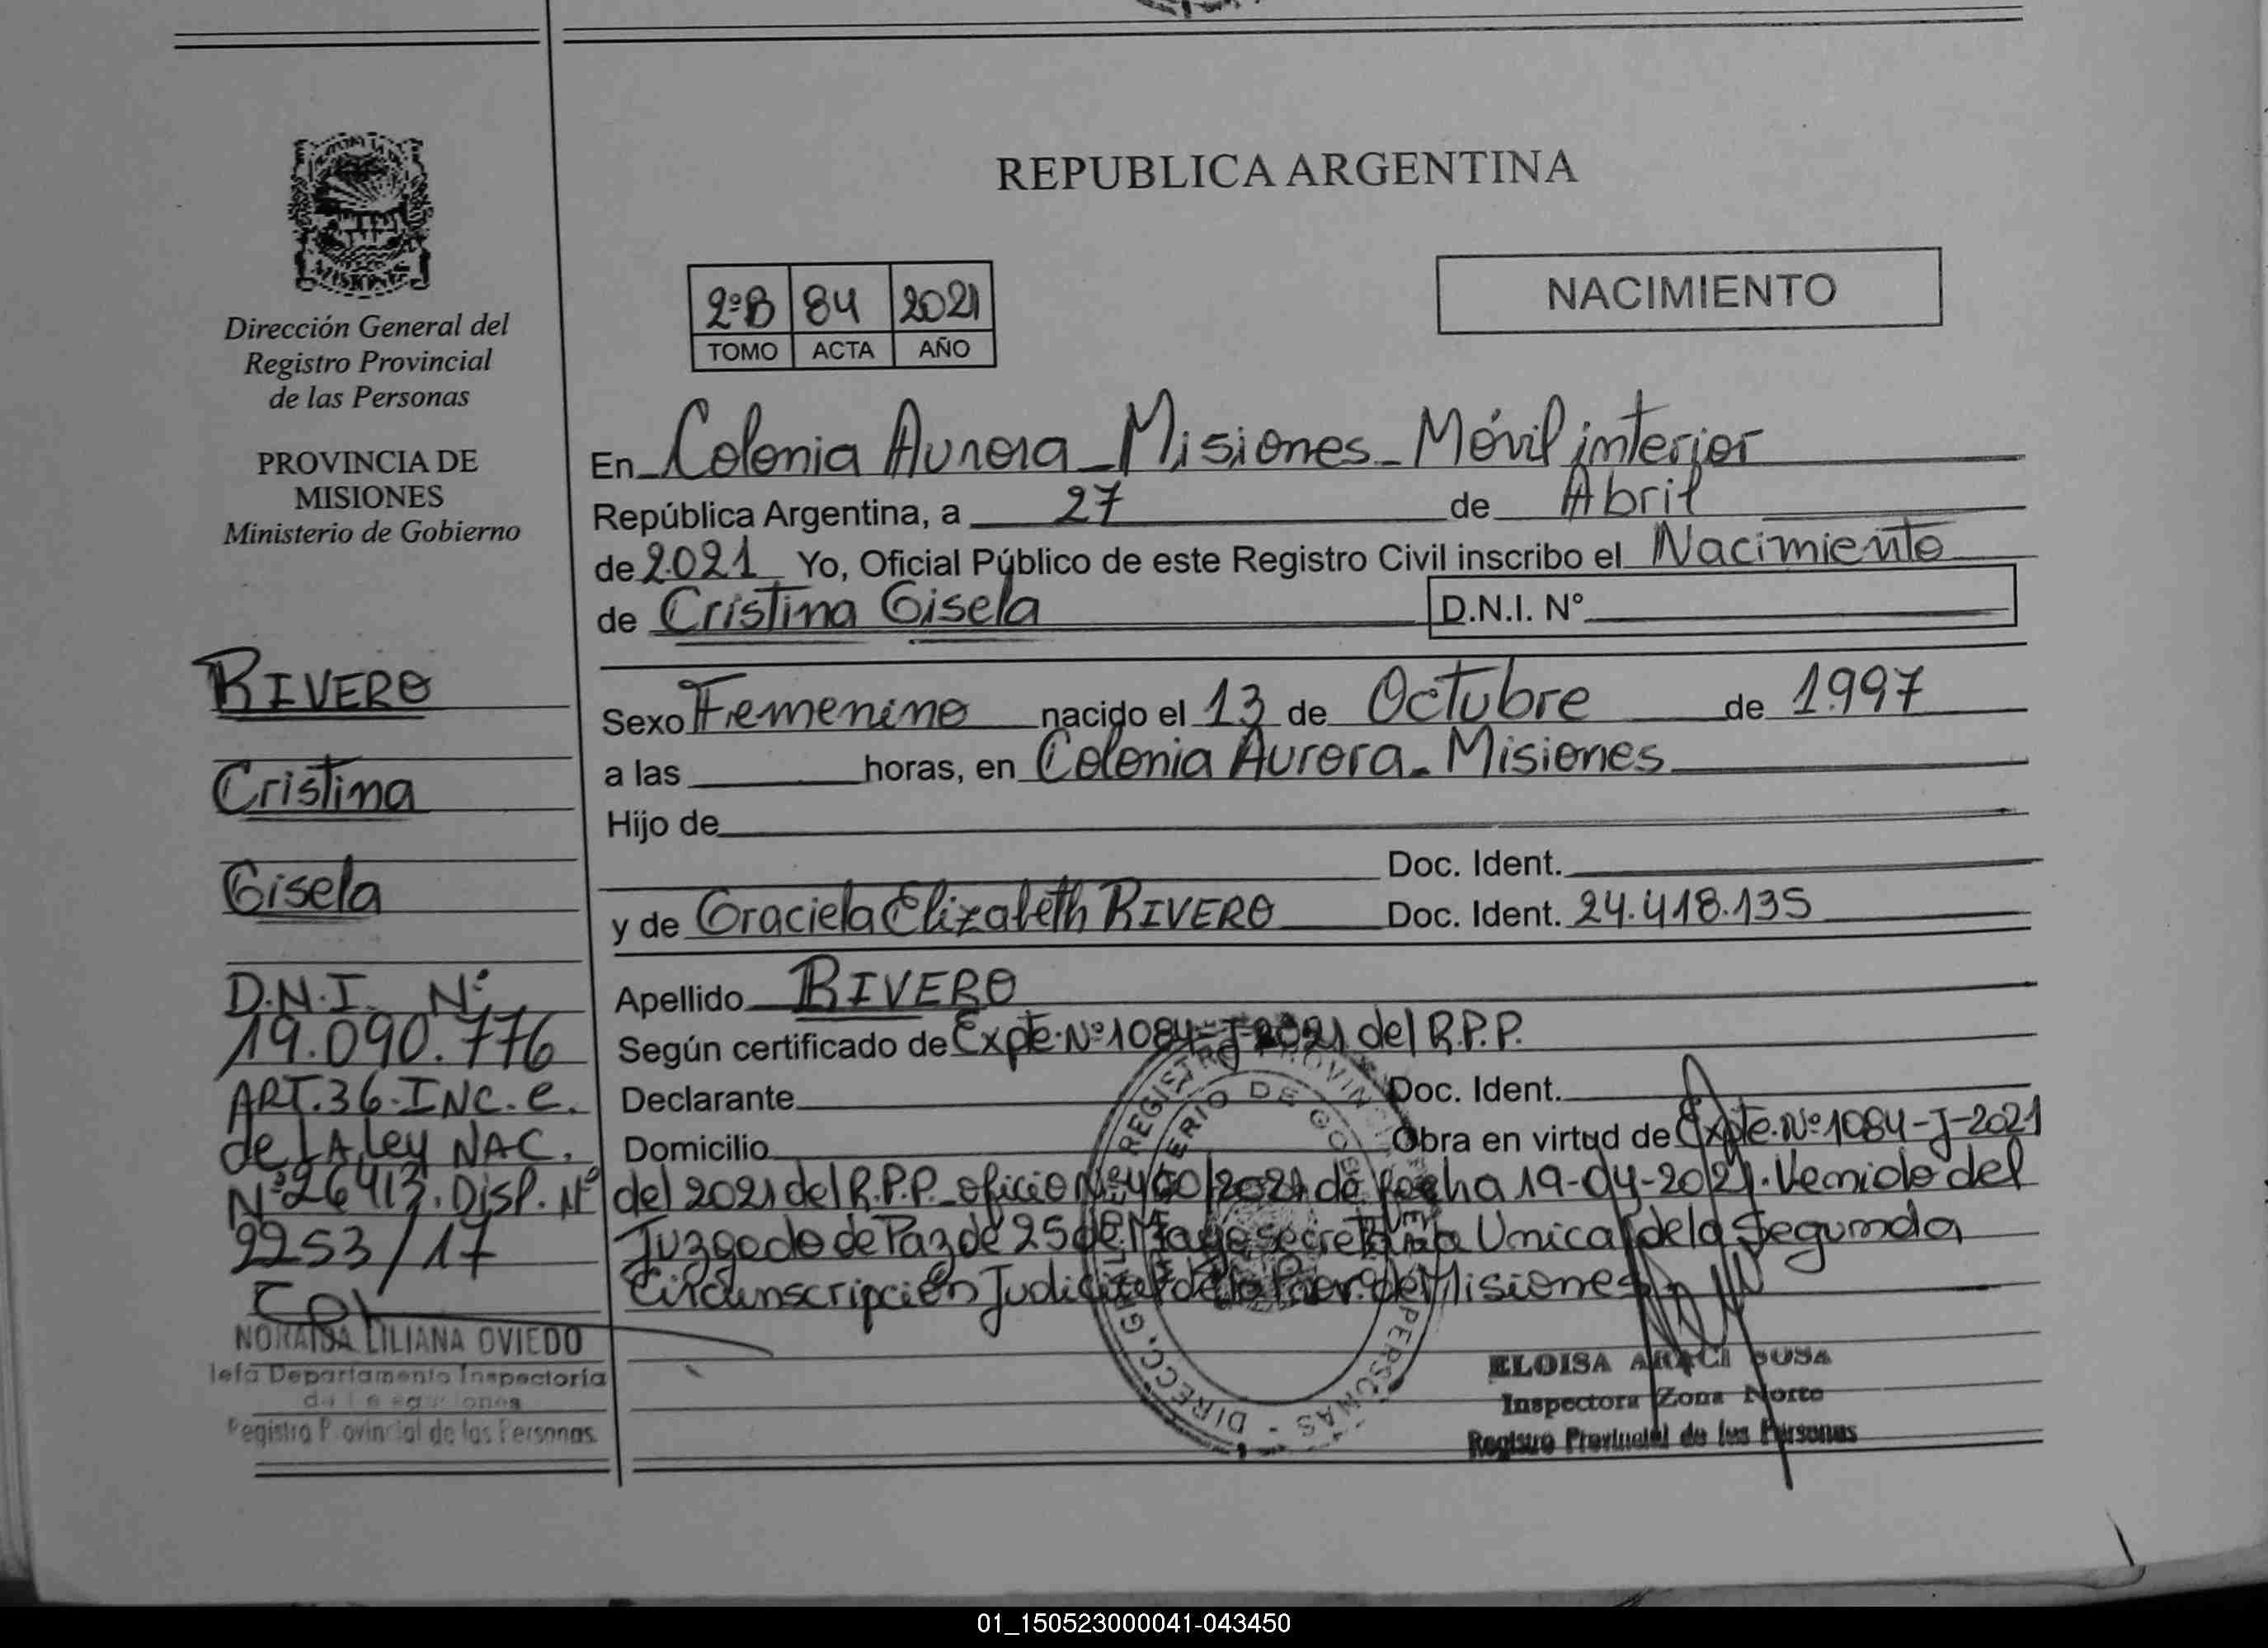 REPUBLICA ARGENTINA
NACIMIENTO
2º B 84 2021
TOMO ACTA AÑO
MISIONES
Dirección General del
Registro Provincial
de las Personas
PROVINCIA DE
MISIONES
Ministerio de Gobierno
RIVERO
Cristina
Gisela
D.N.I. Nº
19.090.776
ART.36-INC.e.
de LA Ley NAC.
Nº26413. DISP. Nº
2253/17
NORAIDA LILIANA OVIEDO
Jefa Departamento Inspectoría
Registro Provincial de las Personas
En Colonia Aurora - Misiones - Móvil interior
República Argentina, a 27 de Abril
de 2.021 Yo, Oficial Público de este Registro Civil inscribo el Nacimiento
de Cristina Gisela D.N.I. Nº
Sexo Femenino nacido el 13 de Octubre de 1.997
a las horas, en Colonia Aurora - Misiones
Hijo de
Doc. Ident.
y de Graciela Elizabeth RIVERO Doc. Ident. 24.418.135
Apellido RIVERO
Según certificado de Expte. Nº 1084-J-2021 del R.P.P.
Declarante Doc. Ident.
Domicilio Obra en virtud de Expte. Nº 1084-J-2021
del 2021 del R.P.P. oficio Nº 400/2021 de fecha 19-04-2021. Venido del
Juzgado de Paz de 25 de Mayo secretaria Unica de la Segunda
Circunscripción Judicial de la Prov. de Misiones
ELOISA ARACI SOSA
Inspectora Zona Norte
Registro Provincial de las Personas
01_150523000041-043450